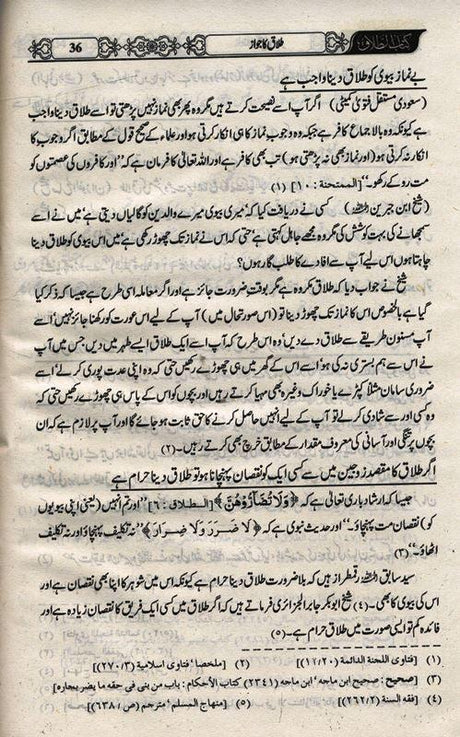 کتاب الطلاق
طلاق کا جواز
36
بے نماز بیوی کو طلاق دینا واجب ہے
(سعودی مستقل فتویٰ کمیٹی) اگر آپ اسے نصیحت کرتے ہیں مگر وہ پھر بھی نماز نہیں پڑھتی تو اسے طلاق دینا واجب
ہے کیونکہ وہ بالاجماع کافر ہے جبکہ وہ وجوبِ نماز کا ہی انکار کرتی ہو اور علماء کے صحیح قول کے مطابق اگر وجوب کا
انکار نہ کرتی ہو (اور نماز بھی نہ پڑھتی ہو) تب بھی کافر ہے اور اللہ تعالیٰ کا فرمان ہے کہ "اور کافروں کی عصمتوں کو
مت روکے رکھو۔" [الممتحنة : ١٠] (١)
(شیخ ابن جبرین رحمہ اللہ) کسی نے دریافت کیا کہ 'میری بیوی میرے والدین کو گالیاں دیتی ہے' میں نے اسے
سمجھانے کی بہت کوشش کی مگر وہ مجھے جاہل کہتی ہے' حتی کہ اس نے نماز تک چھوڑ رکھی ہے' میں اس بیوی کو طلاق دینا
چاہتا ہوں اس لیے آپ سے افادے کا طلب گار ہوں؟
شیخ نے جواب دیا کہ طلاق مکروہ ہے مگر بوقت ضرورت جائز ہے اور اگر معاملہ اسی طرح ہے جیسا کہ ذکر کیا
گیا ہے بالخصوص اس کا نماز تک چھوڑ دینا تو (اس صورتحال میں) آپ کے لیے اس عورت کو رکھنا جائز نہیں' اسے
آپ مسنون طریقے سے طلاق دے دیں' وہ اس طرح کہ آپ اسے ایک طلاق ایسے طہر میں دیں جس میں آپ
نے اس سے ہم بستری نہ کی ہو' اسے اس کے گھر میں ہی چھوڑے رکھیں حتی کہ وہ اپنی عدت پوری کر لے' اسے
ضروری سامان مثلاً کپڑے یا خوراک وغیرہ بھی مہیا کرتے رہیں اور بچوں کو اس کے پاس ہی چھوڑے رکھیں حتی کہ
وہ کسی اور سے شادی کر لے تو آپ کے لیے انہیں حاصل کرنے کا حق ثابت ہو جائے گا اور آپ پر لازم ہے کہ ان
بچوں پر تنگی اور آسانی کی معروف مقدار کے مطابق خرچ بھی کرتے رہیں۔ (٢)
اگر طلاق کا مقصد زوجین میں سے کسی ایک کو نقصان پہنچانا ہو تو طلاق دینا حرام ہے
جیسا کہ ارشاد باری تعالیٰ ہے کہ ﴿وَلَا تُضَارُّوهُنَّ﴾ [الـطلاق : ٦] "اور تم انہیں (یعنی اپنی بیویوں
کو) نقصان مت پہنچاؤ۔" اور حدیث نبوی ہے کہ ﴿لَا ضَرَرَ وَلَا ضِرَارَ﴾ "نہ تکلیف پہنچاؤ اور نہ تکلیف
اٹھاؤ۔" (٣)
سید سابق رحمہ اللہ رقمطراز ہیں کہ بلاضرورت طلاق دینا حرام ہے کیونکہ اس میں شوہر کا اپنا بھی نقصان ہے اور
اس کی بیوی کا بھی۔ (٤) شیخ ابوبکر جابر الجزائری فرماتے ہیں کہ اگر طلاق میں کسی ایک فریق کا نقصان زیادہ ہے اور
فائدہ کم تو ایسی صورت میں طلاق حرام ہے۔ (٥)
(١) [فتاوى اللجنة الدائمة (١٢/٢٠)] (٢) [ملخصا، فتاوى اسلامية (٢٧٠/٣)]
(٣) [صحيح : صحيح ابن ماجه، ابن ماجه (٢٣٤١) كتاب الأحكام : باب من بنى فى حقه ما يضر بجاره]
(٤) [فقه السنة (٢٦٢/٢)] (٥) [منهاج المسلم، مترجم (ص/٦٣٨)]